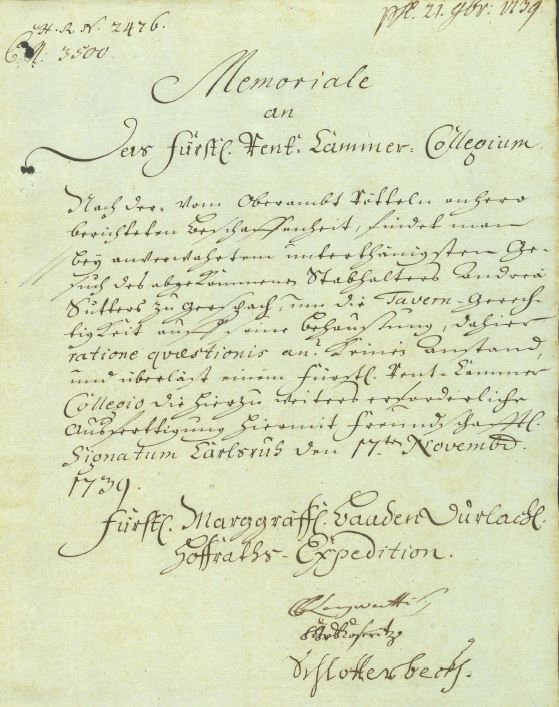 H. R. N. 2476.
C. N. 3500.
pst. 21. 9br: 1739.
Memoriale
an
Das Fürstl. Rent-Cammer-Collegium.
Nach der vom Oberambt Rötteln anhero
berichteten Beschaffenheit, findet man
bey anverwahrtem unterthänigsten Ge-
such des abgekommenen Stabhalters Andreä
Sutters zu Gerspach, um die Tavern-Gerech-
tigkeit auff seine Behaußung, dahier
ratione quæstionis an? keinen anstand,
und überläst einem Fürstl. Rent-Cammer
Collegio die hierzu weiters erforderliche
Ausferttigung hiermit freundschafftl.
Signatum Carlsruh den 17.ten Novembr.
1739.
Fürstl. Marggräffl. Baaden Durlachl.
Hoffraths-Expedition.
Schlotterbeck.